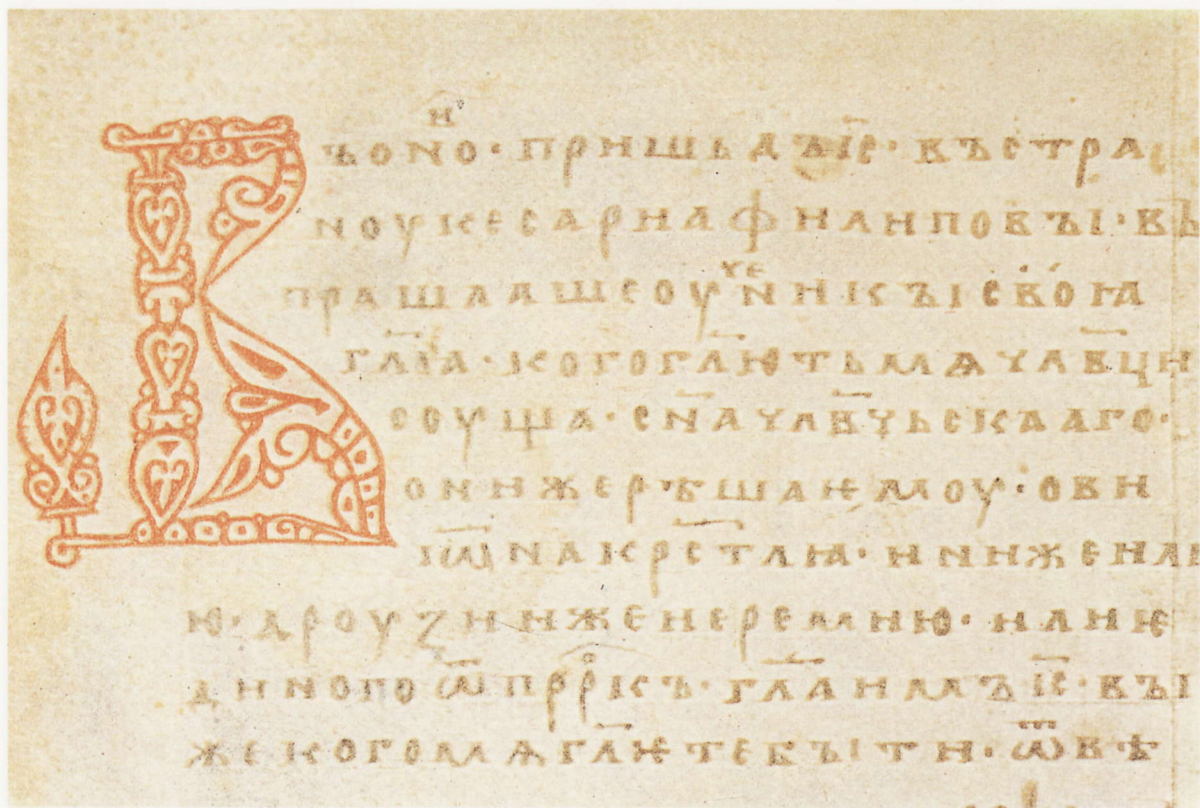 Въоно·пришьдъі҃с·въстра
ноукесариꙗфилиповъі·въ
прашаашеоученикъісвоѩ
гл҃ѩ·когогл҃ѭтьмѧчл҃вци
соуща·сн҃ачл҃вчьскааго·
онижерѣшаѥмоу·ови
іѡ҃накрс҃тлꙗ·инижеили
ю·дроузиижеиеремию·илиѥ
динопоѿпрр҃къ·гл҃аимъіс҃·въі
жекогомѧгл҃ѥтебъіти·ѿвѣ